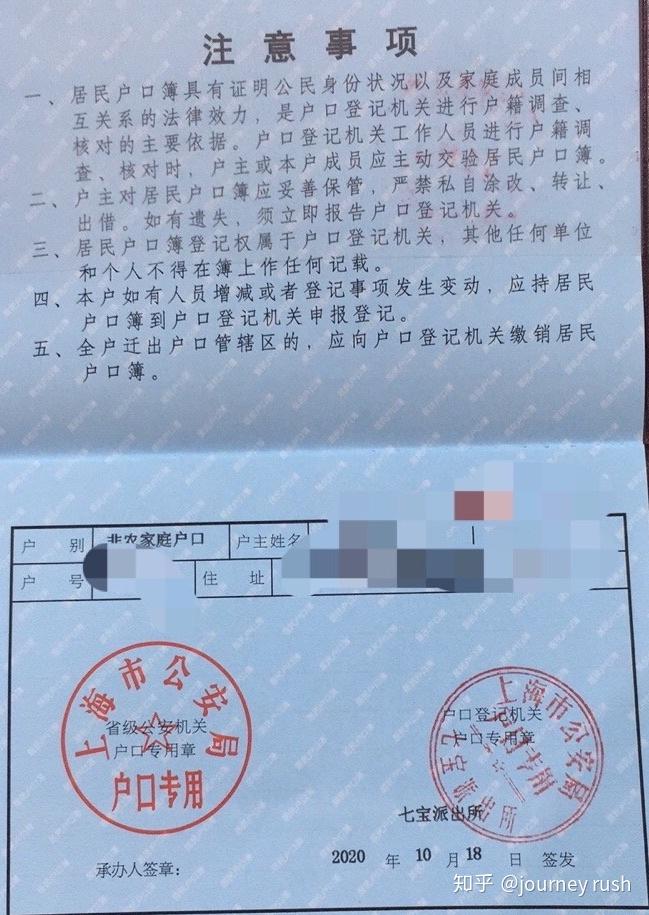 注意事项
一、居民户口簿具有证明公民身份状况以及家庭成员间相
互关系的法律效力，是户口登记机关进行户籍调查、
核对的主要依据。户口登记机关工作人员进行户籍调
查、核对时，户主或本户成员应主动交验居民户口簿。
二、户主对居民户口簿应妥善保管，严禁私自涂改、转让、
出借。如有遗失，须立即报告户口登记机关。
三、居民户口簿登记权属于户口登记机关，其他任何单位
和个人不得在簿上作任何记载。
四、本户如有人员增减或者登记事项发生变动，应持居民
户口簿到户口登记机关申报登记。
五、全户迁出户口管辖区的，应向户口登记机关缴销居民
户口簿。
户 别 非农家庭户口 户主姓名
户 号 住 址
上海市公安局
省级公安机关
户口专用章
户口专用
上海市公安局
户口登记机关
户口专用章
七宝派出所
七宝派出所
承办人签章：
2020 年 10 月 18 日 签发
知乎 @journey rush